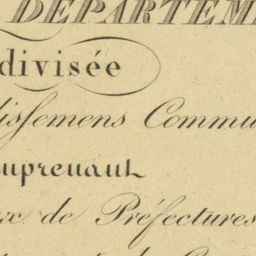 DÉPARTEM
divisée
dissemens Commu
mprenant
rc de Préfectures